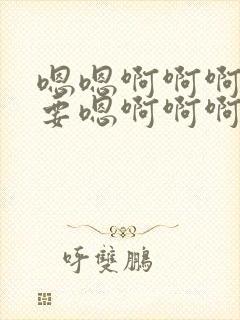 嗯嗯啊啊啊
要嗯啊啊啊
呼雙鵬